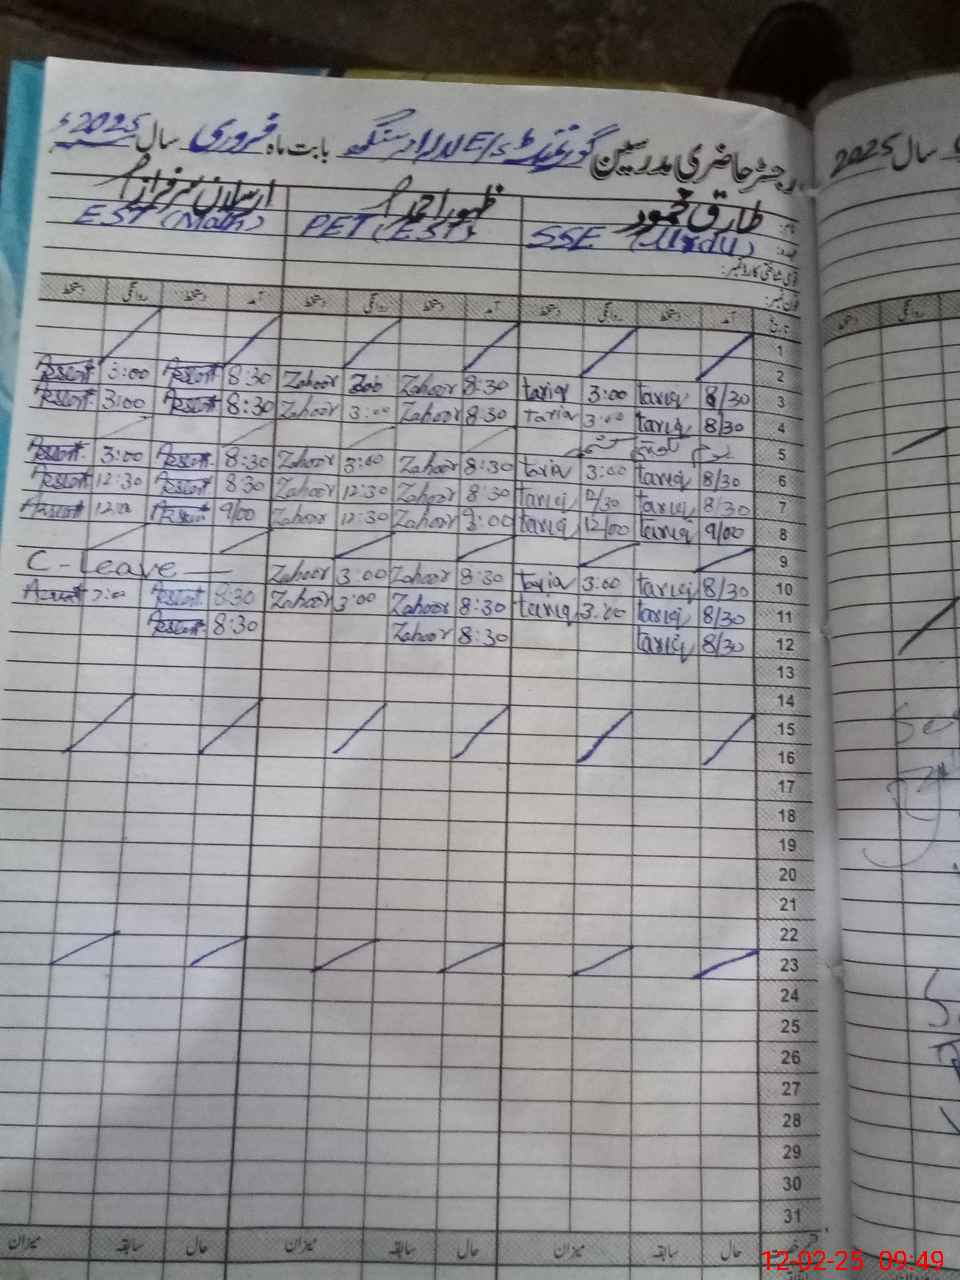 رجسٹر حاضری مدرسین گورنمنٹ E/S بابت ماہ فروری سال 2025ء
نام: طارق محمود ظہور احمد ارسلان سرفراز
عہدہ: SSE (Urdu) PET (EST) EST (Math)
قومی شناختی کارڈ نمبر:
فون نمبر:
تاریخ آمد دستخط روانگی دستخط آمد دستخط روانگی دستخط آمد دستخط روانگی دستخط
1
2
3 8/30 tariq 3:00 tariq 8:30 Zahoor 3:00 Zahoor 8:30 3:00
4 8/30 tariq 3:00 tariq 8:30 Zahoor 3:00 Zahoor 8:30 3:00
5 یوم کشمیر
6 8/30 tariq 3:00 tariq 8:30 Zahoor 3:00 Zahoor 8:30 3:00
7 8/30 tariq 12/30 tariq 8:30 Zahoor 12:30 Zahoor 8:30 12:30
8 9/00 tariq 12/00 tariq 9:00 Zahoor 12:30 Zahoor 9/00
9
10 8/30 tariq 3:00 tariq 8:30 Zahoor 3:00 Zahoor C-Leave
11 8/30 tariq 3:00 tariq 8:30 Zahoor 3:00 Zahoor 8:30
12 8/30 tariq 8:30 Zahoor 8:30
13
14
15
16
17
18
19
20
21
22
23
24
25
26
27
28
29
30
31
حال سابقہ میزان حال سابقہ میزان حال سابقہ میزان
سال 2025
روانگی دستخط
12-02-25 09:49